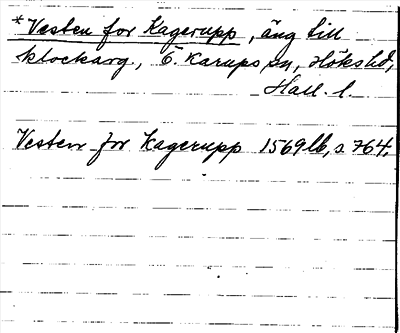 *Vesten for Kagerupp, äng till
klockarg., Ö. Karups sn, Höks hd,
Hall. l.
Vesten for Kagerupp 1569 lb, s 764.